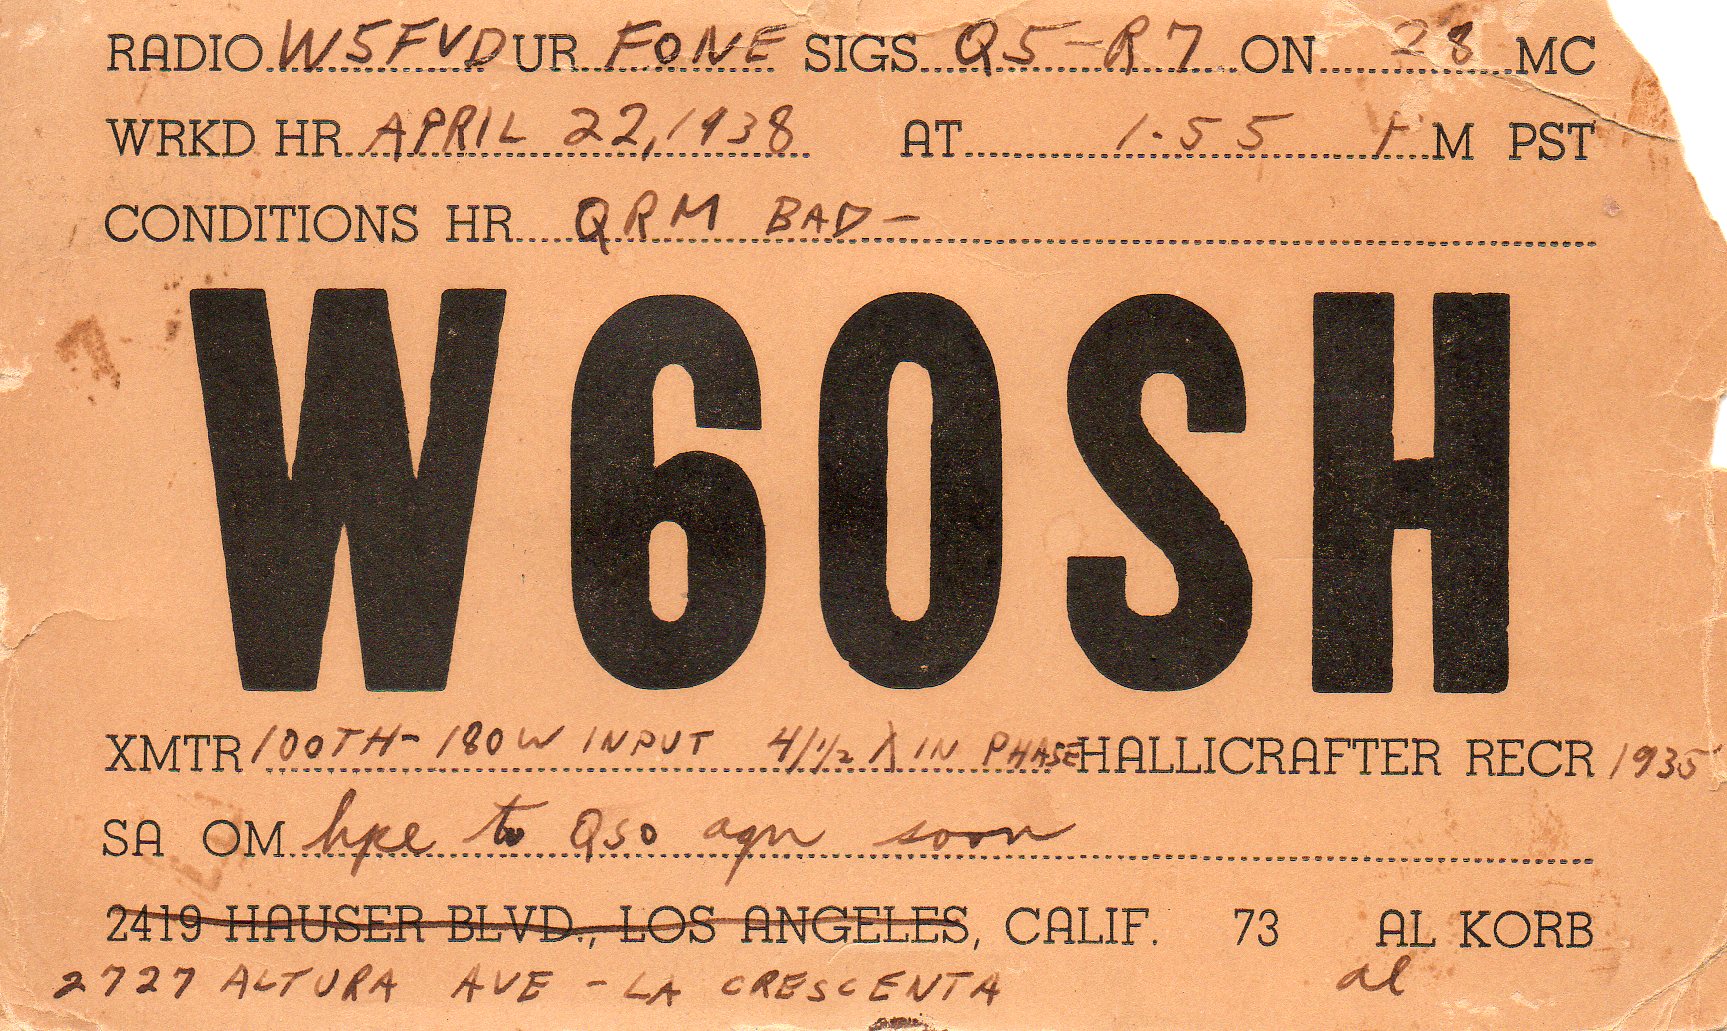 RADIO W5FVD UR FONE SIGS Q5-R7 ON 28 MC
WRKD HR APRIL 22, 1938 AT 1.55 PM PST
CONDITIONS HR QRM BAD-
W6OSH
XMTR 100TH- 180W INPUT 4/1/2 λ IN PHASE HALLICRAFTER RECR 1935
SA OM hpe to QSO agn soon
2419 HAUSER BLVD., LOS ANGELES, CALIF. 73 AL KORB
2727 ALTURA AVE - LA CRESCENTA al